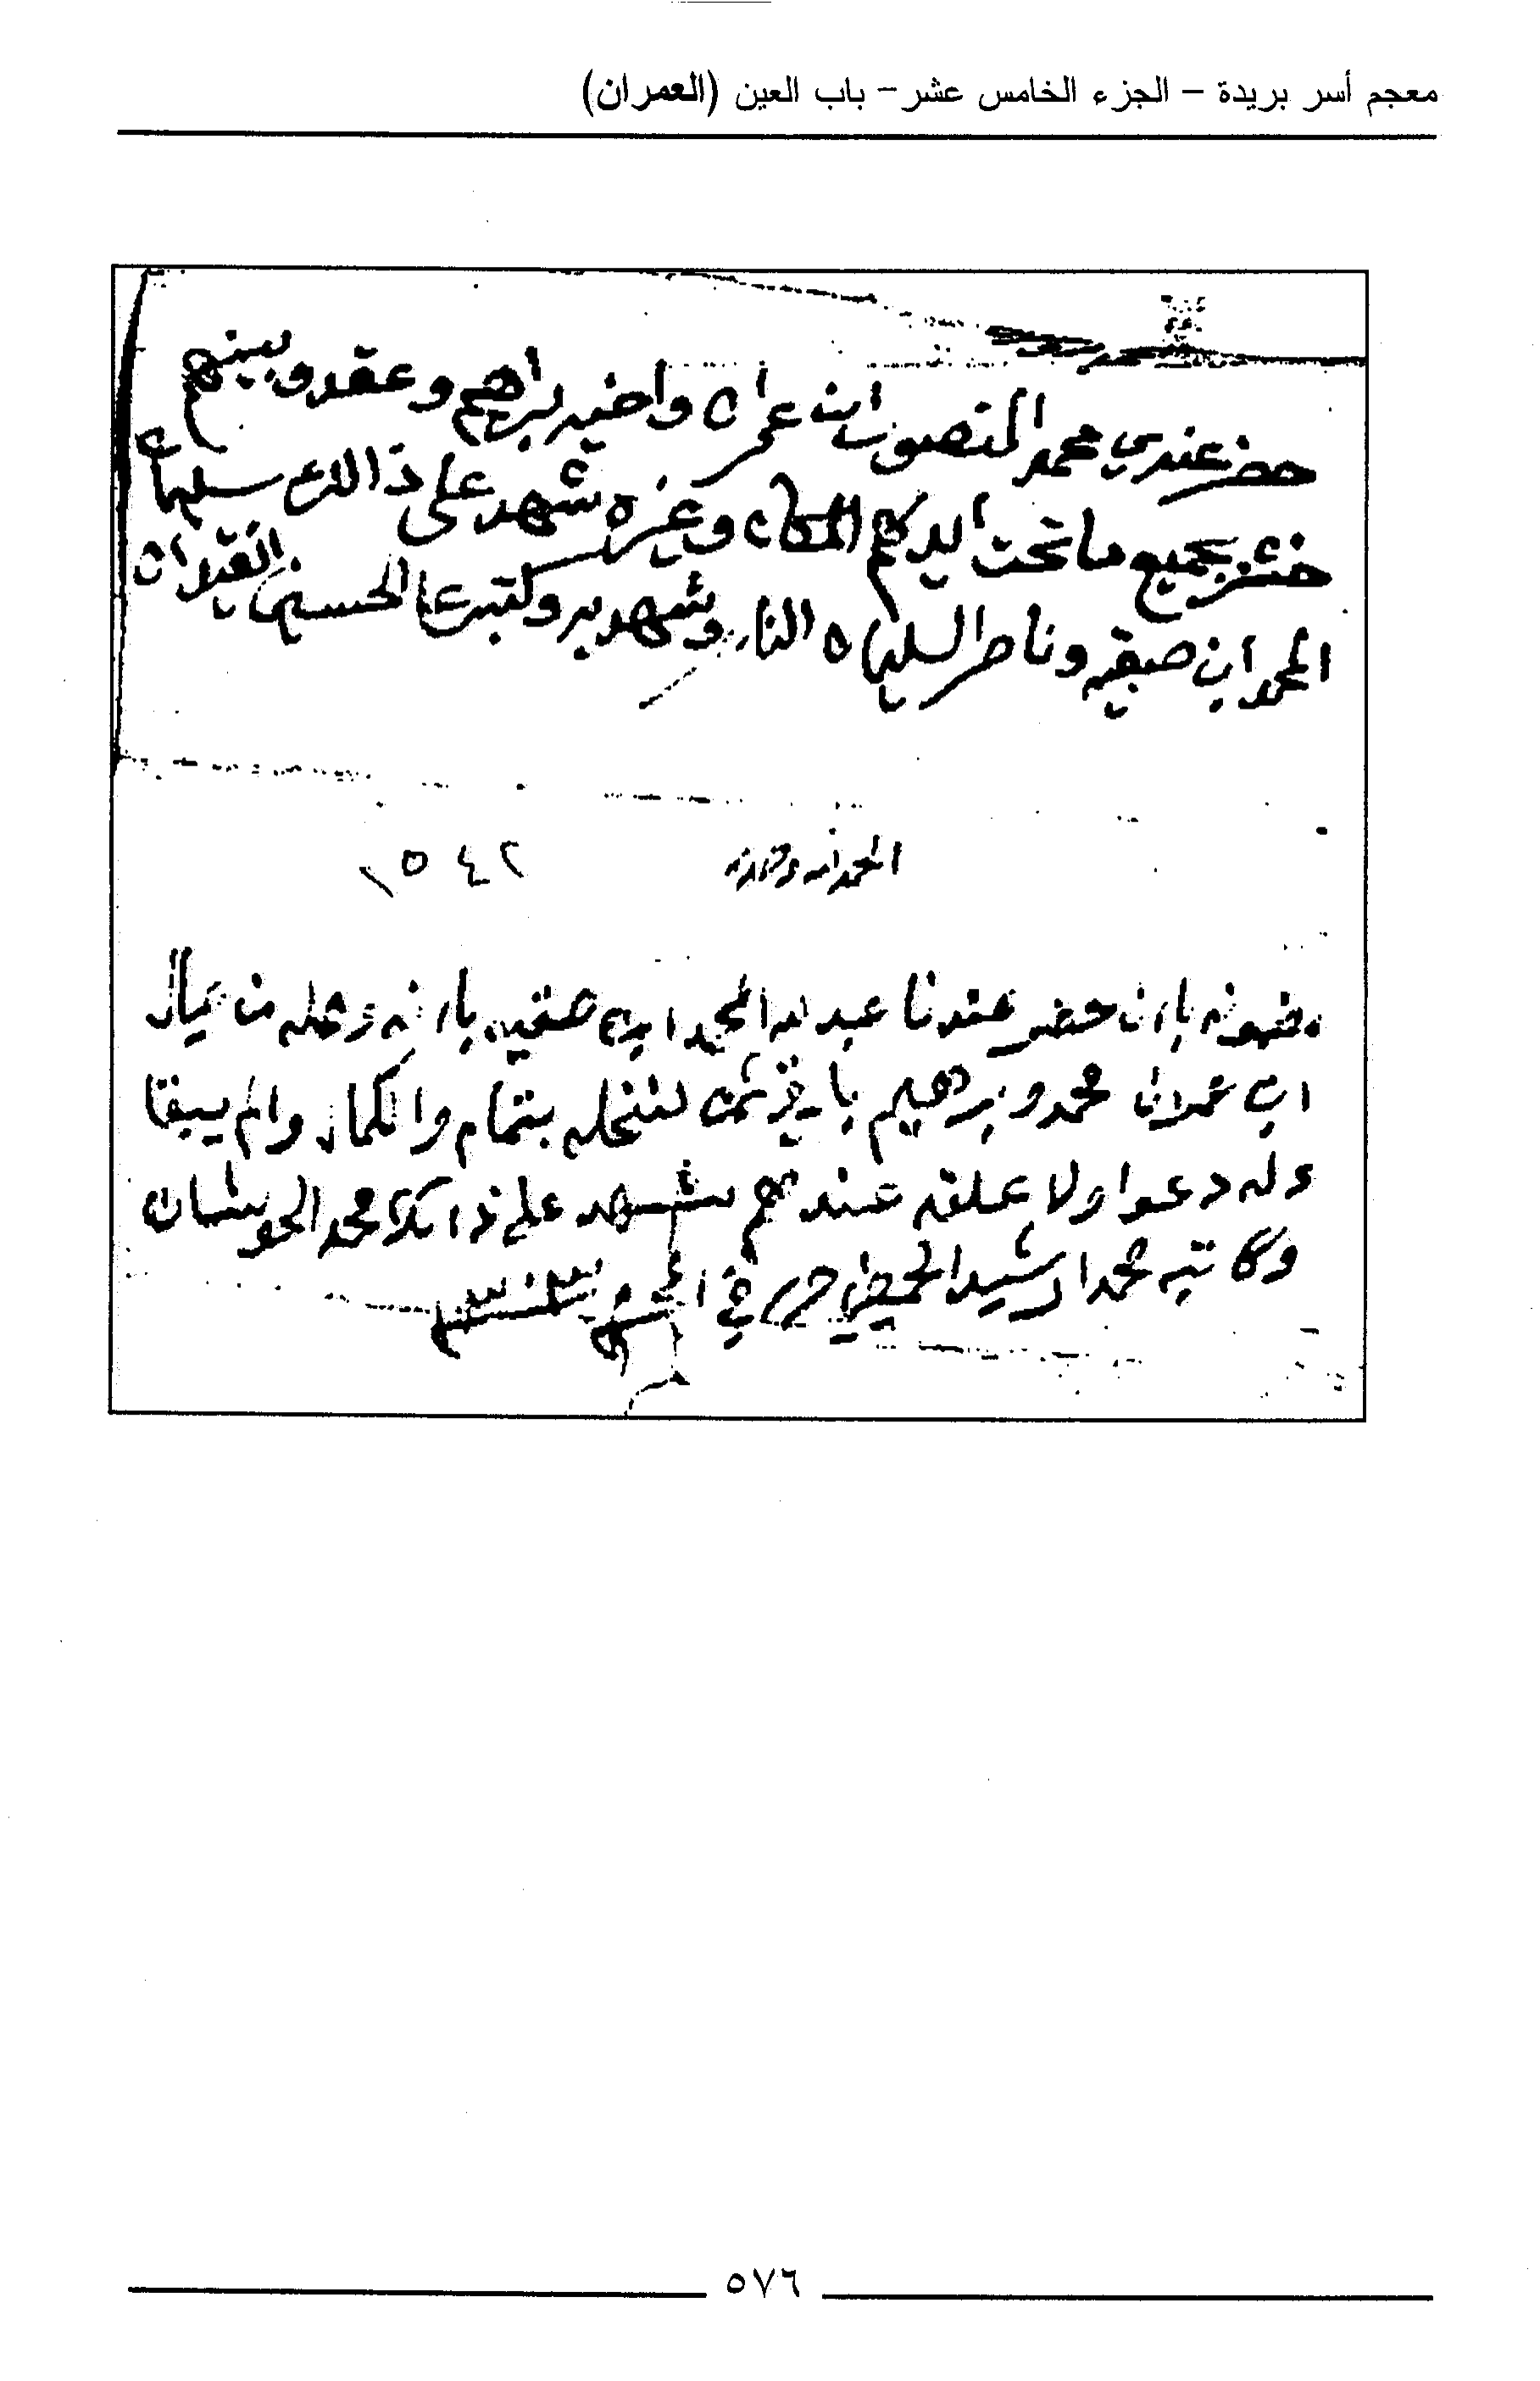 معجم أسر بريدة – الجزء الخامس عشر – باب العين (العمران)
حضر عندي محمد المنصور ابن عمران واخيه براهيم وعقدو بينهم
بجميع ما تحت ايديهم المكان وغيره شهد على ذالك سليمان
المحمد ابن صبقيه وناصر السليمان النار وشهد به وكتبه علي الحسين النقيدان
الحمدلله وحده
مضمونه باان حضر عندنا عبدالله المحمد ابن صقيه باانه وصله من عيال
ابن عمران محمد وبرهيم ثمن لنخله بتمام والكمال والم يبقا
وله دعوا ولا علقه عندهم شهد على ذالك محمد الحوشان
وكاتبه محمد ارشيد الحميضي حرر في
٥٧٦